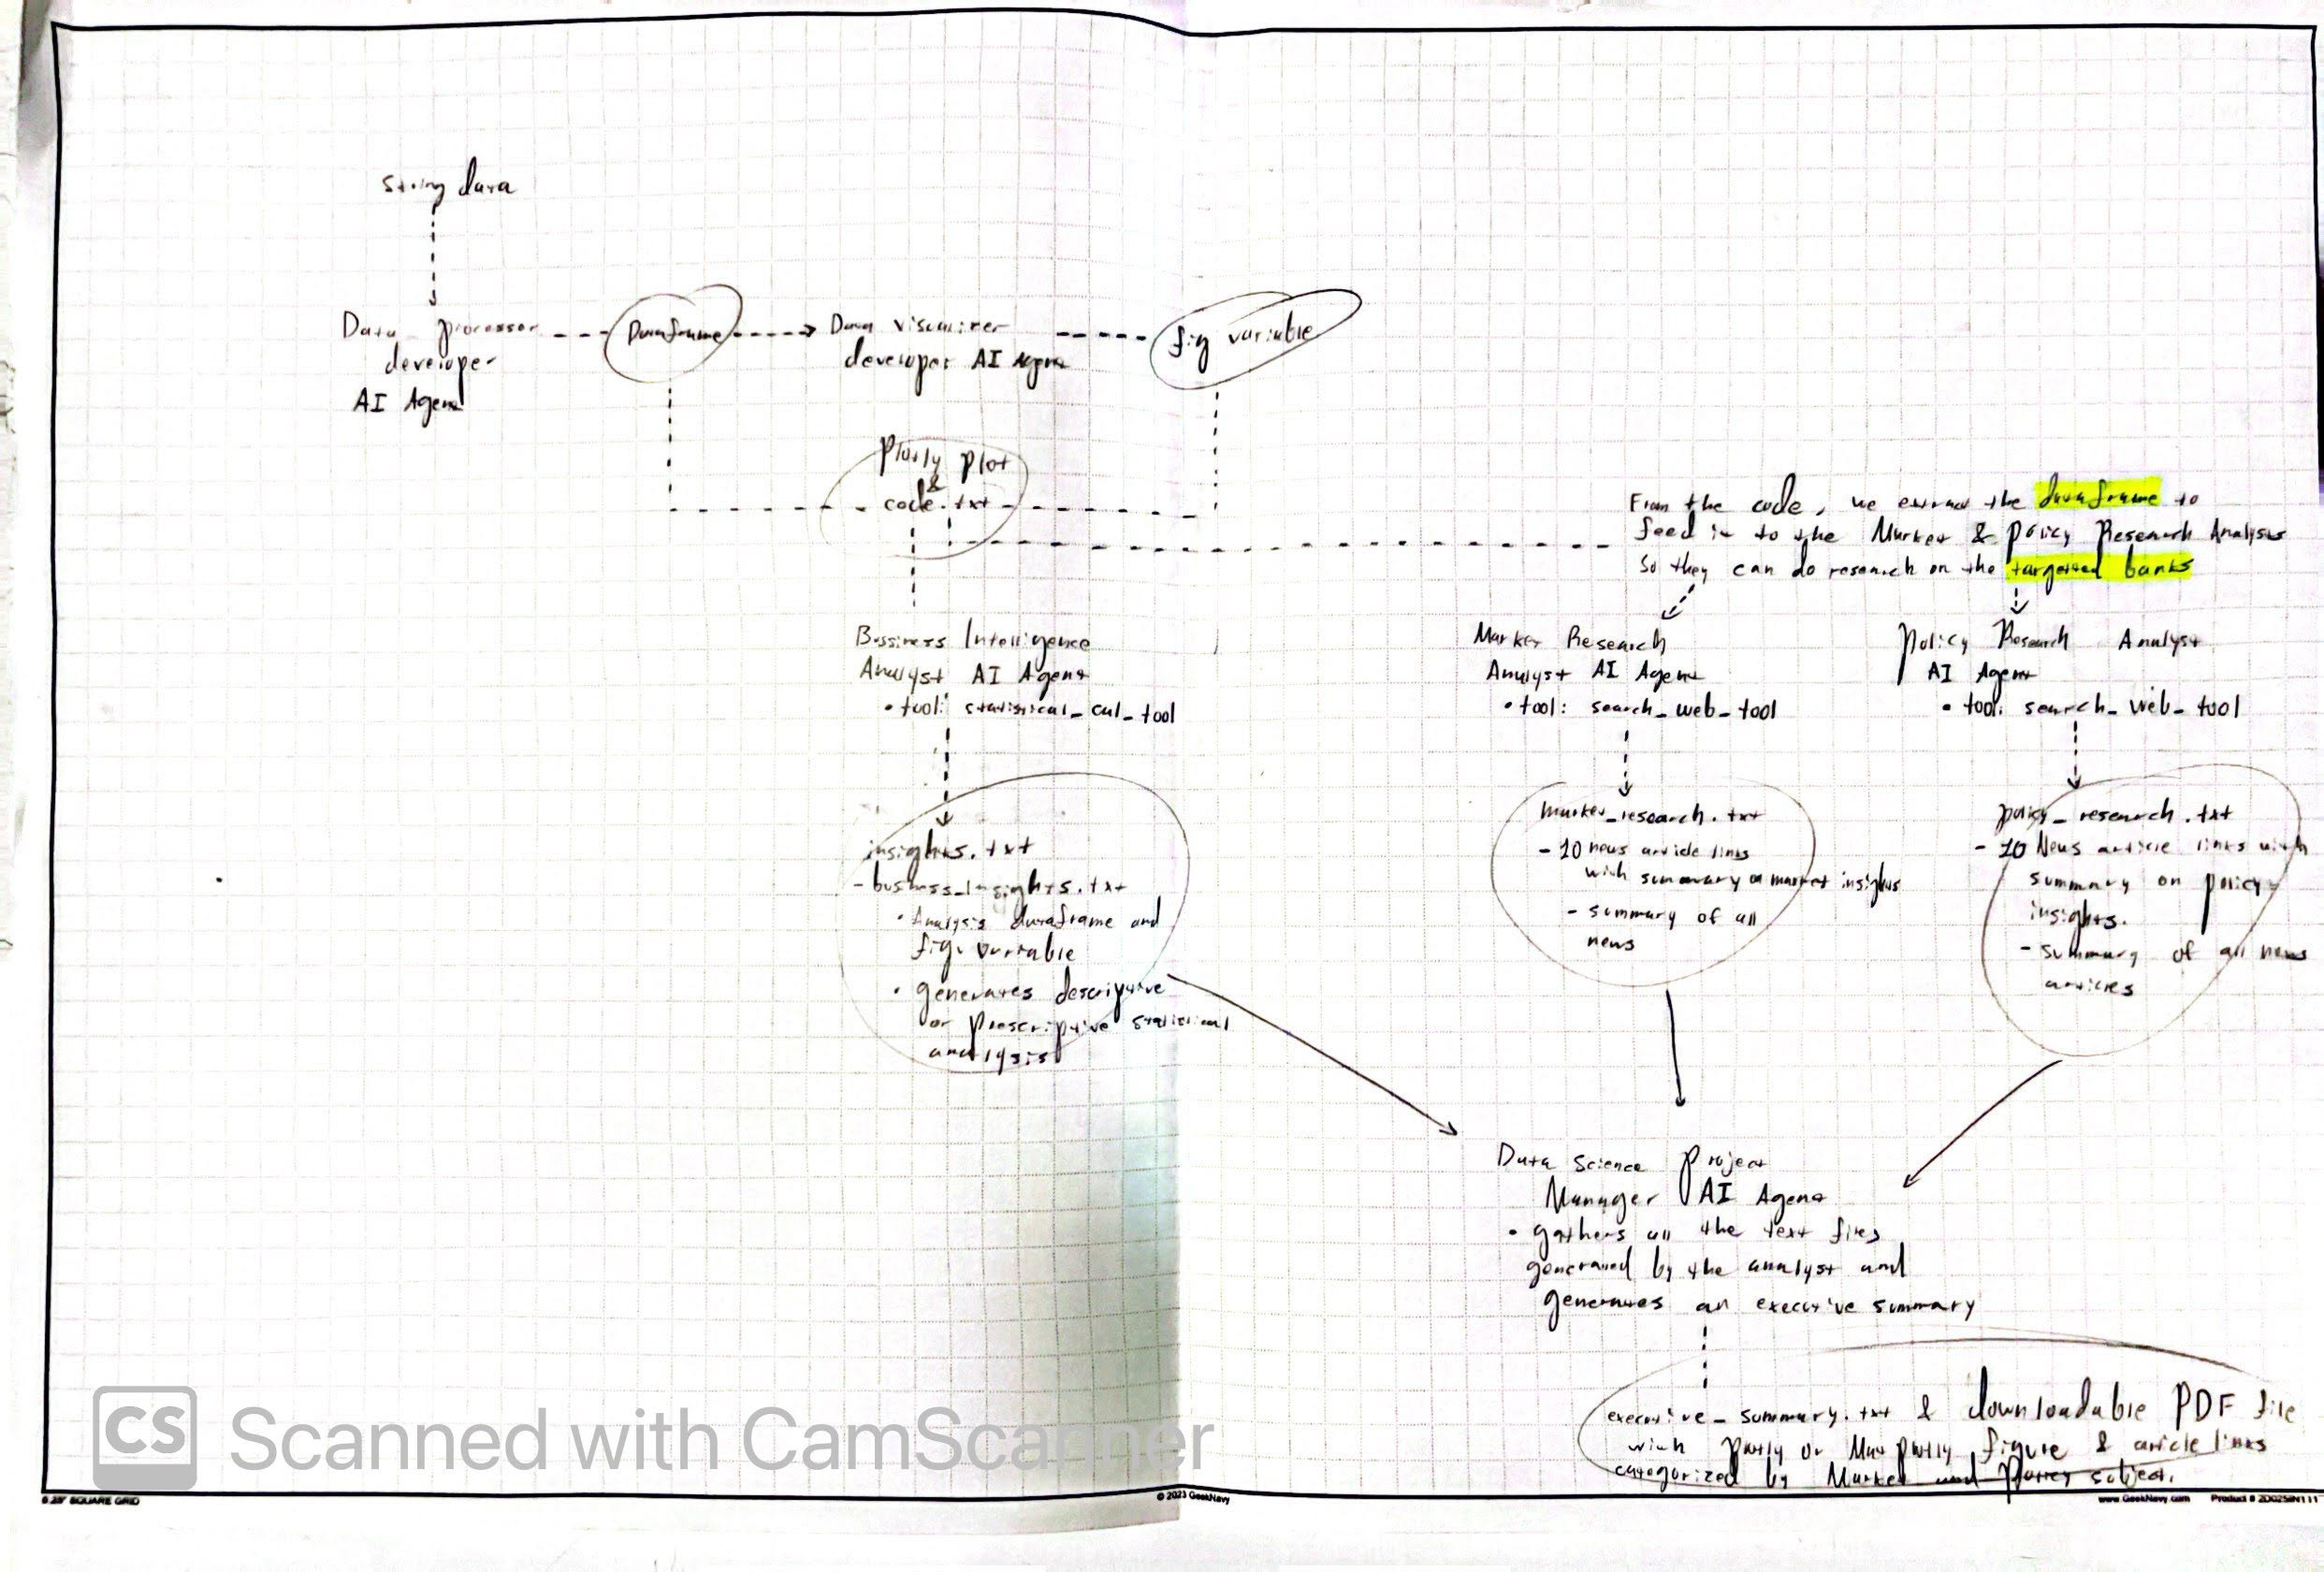 String data
Data processor
developer
AI Agent
Dataframe
Data visualizer
developer AI Agent
fig variable
Plotly plot
&
code.txt
From the code, we extract the dataframe to
feed it to the Market & Policy Research Analysts
So they can do research on the targetted banks
Bussiness Intelligence
Analyst AI Agent
• tool: statistical_cal_tool
Market Research
Analyst AI Agent
• tool: search_web_tool
Policy Research Analyst
AI Agent
• tool: search_web_tool
insights.txt
- business_insights.txt
• Analysis dataframe and
fig. variable
• generates descriptive
or prescriptive statistical
analysis
market_research.txt
- 10 news article links
with summary on market insights
- summary of all
news
policy_research.txt
- 10 News article links with
summary on policy
insights.
- summary of all news
articles
Data Science Project
Manager AI Agent
• gathers all the text files
generated by the analyst and
generates an executive summary
executive_summary.txt & downloadable PDF file
with plotly or Matplotly figure & article links
categorized by Market and Policy subject.
CS Scanned with CamScanner
SQUARE GRID
© 2023 GeekNavy
www.GeekNavy.com